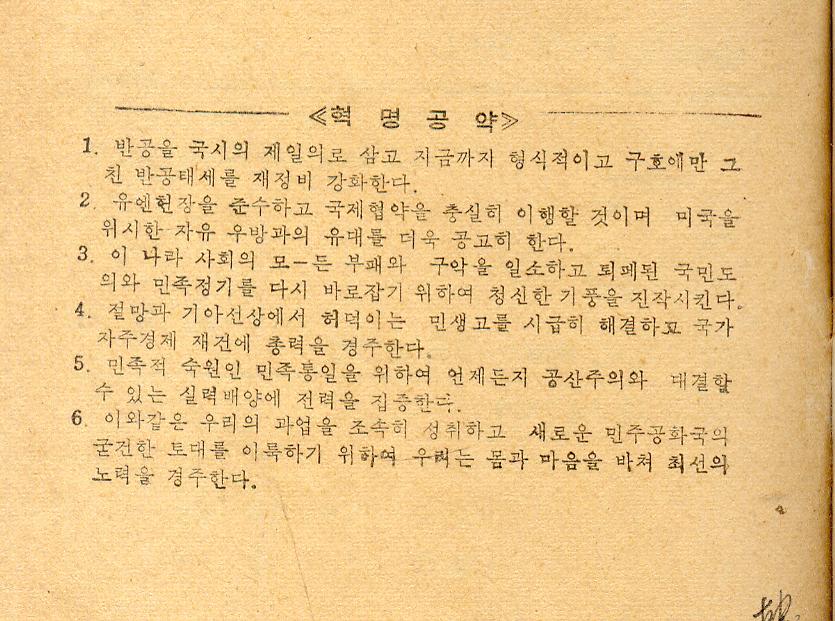 《혁 명 공 약》
1. 반공을 국시의 제일의로 삼고 지금까지 형식적이고 구호에만 그
친 반공태세를 재정비 강화한다.
2. 유엔헌장을 준수하고 국제협약을 충실히 이행할 것이며 미국을
위시한 자유 우방과의 유대를 더욱 공고히 한다.
3. 이 나라 사회의 모―든 부패와 구악을 일소하고 퇴폐된 국민도
의와 민족정기를 다시 바로잡기 위하여 청신한 기풍을 진작시킨다.
4. 절망과 기아선상에서 허덕이는 민생고를 시급히 해결하고 국가
자주경제 재건에 총력을 경주한다.
5. 민족적 숙원인 민족통일을 위하여 언제든지 공산주의와 대결할
수 있는 실력배양에 전력을 집중한다.
6. 이와같은 우리의 과업을 조속히 성취하고 새로운 민주공화국의
굳건한 토대를 이룩하기 위하여 우리는 몸과 마음을 바쳐 최선의
노력을 경주한다.